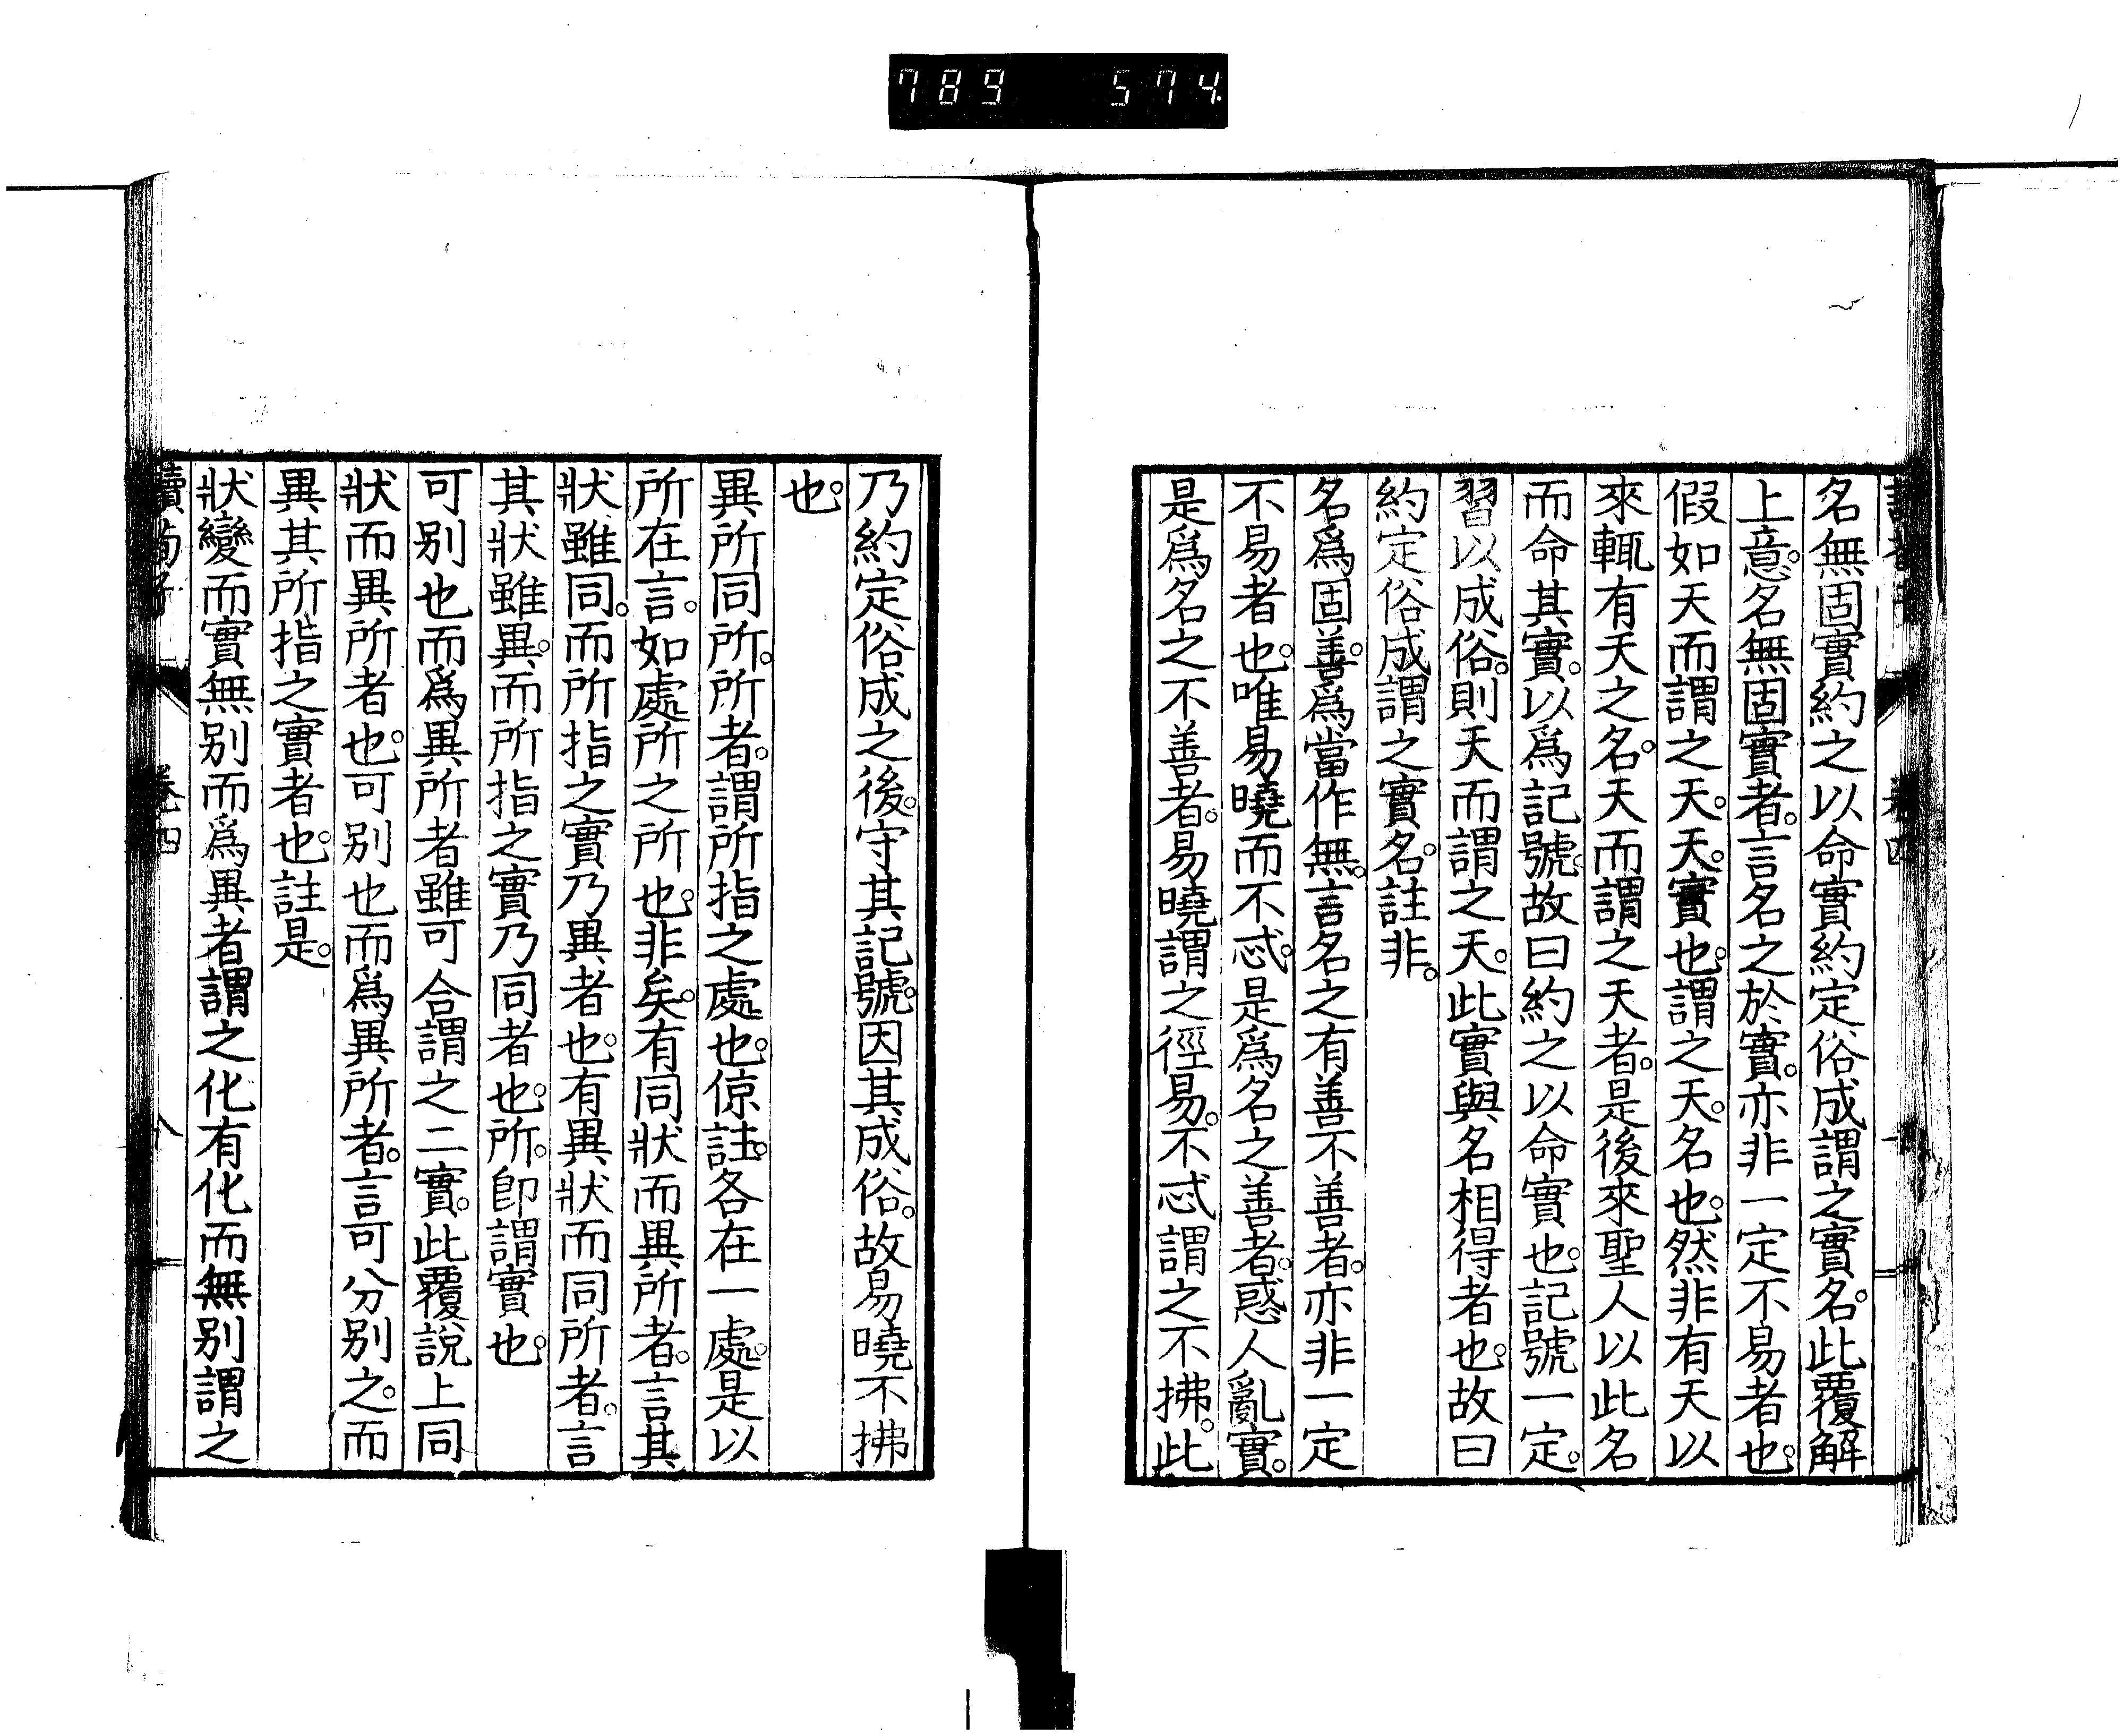 789 574
名無固實約之以命實約定俗成謂之實名。此覆解
上意。名無固實者。言名之於實。亦非一定不易者也。
假如天而謂之天。天。實也。謂之天。名也。然非有天以
來輒有天之名。天而謂之天者。是後來聖人以此名
而命其實。以爲記號。故曰約之以命實也。記號一定。
習以成俗。則天而謂之天。此實與名相得者也。故曰
約定俗成謂之實名。註非。
名爲固善。爲當作無。言名之有善不善者。亦非一定
不易者也。唯易曉而不忒。是爲名之善者。惑人亂實。
是爲名之不善者。易曉謂之徑易。不忒謂之不拂。此
乃約定俗成之後。守其記號。因其成俗。故易曉不拂
也。
異所同所。所者。謂所指之處也。倞註。各在一處。是以
所在言。如處所之所也。非矣。有同狀而異所者。言其
狀雖同。而所指之實乃異者也。有異狀而同所者。言
其狀雖異。而所指之實乃同者也。所。卽謂實也。
可別也而爲異所者雖可合謂之二實。此覆說上同
狀而異所者也。可別也而爲異所者。言可分別之。而
異其所指之實者也。註是。
狀變而實無別而爲異者謂之化有化而無別謂之
讀荀子 卷四 八